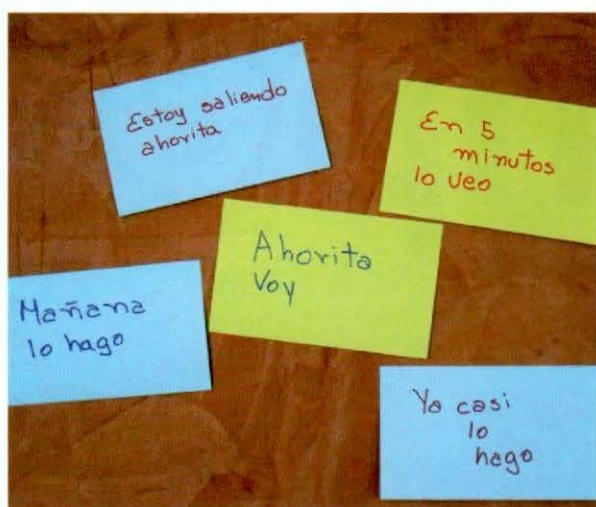 Estoy saliendo
ahorita
En 5
minutos
lo veo
Ahorita
Voy
Mañana
lo hago
Ya casi
lo
hago